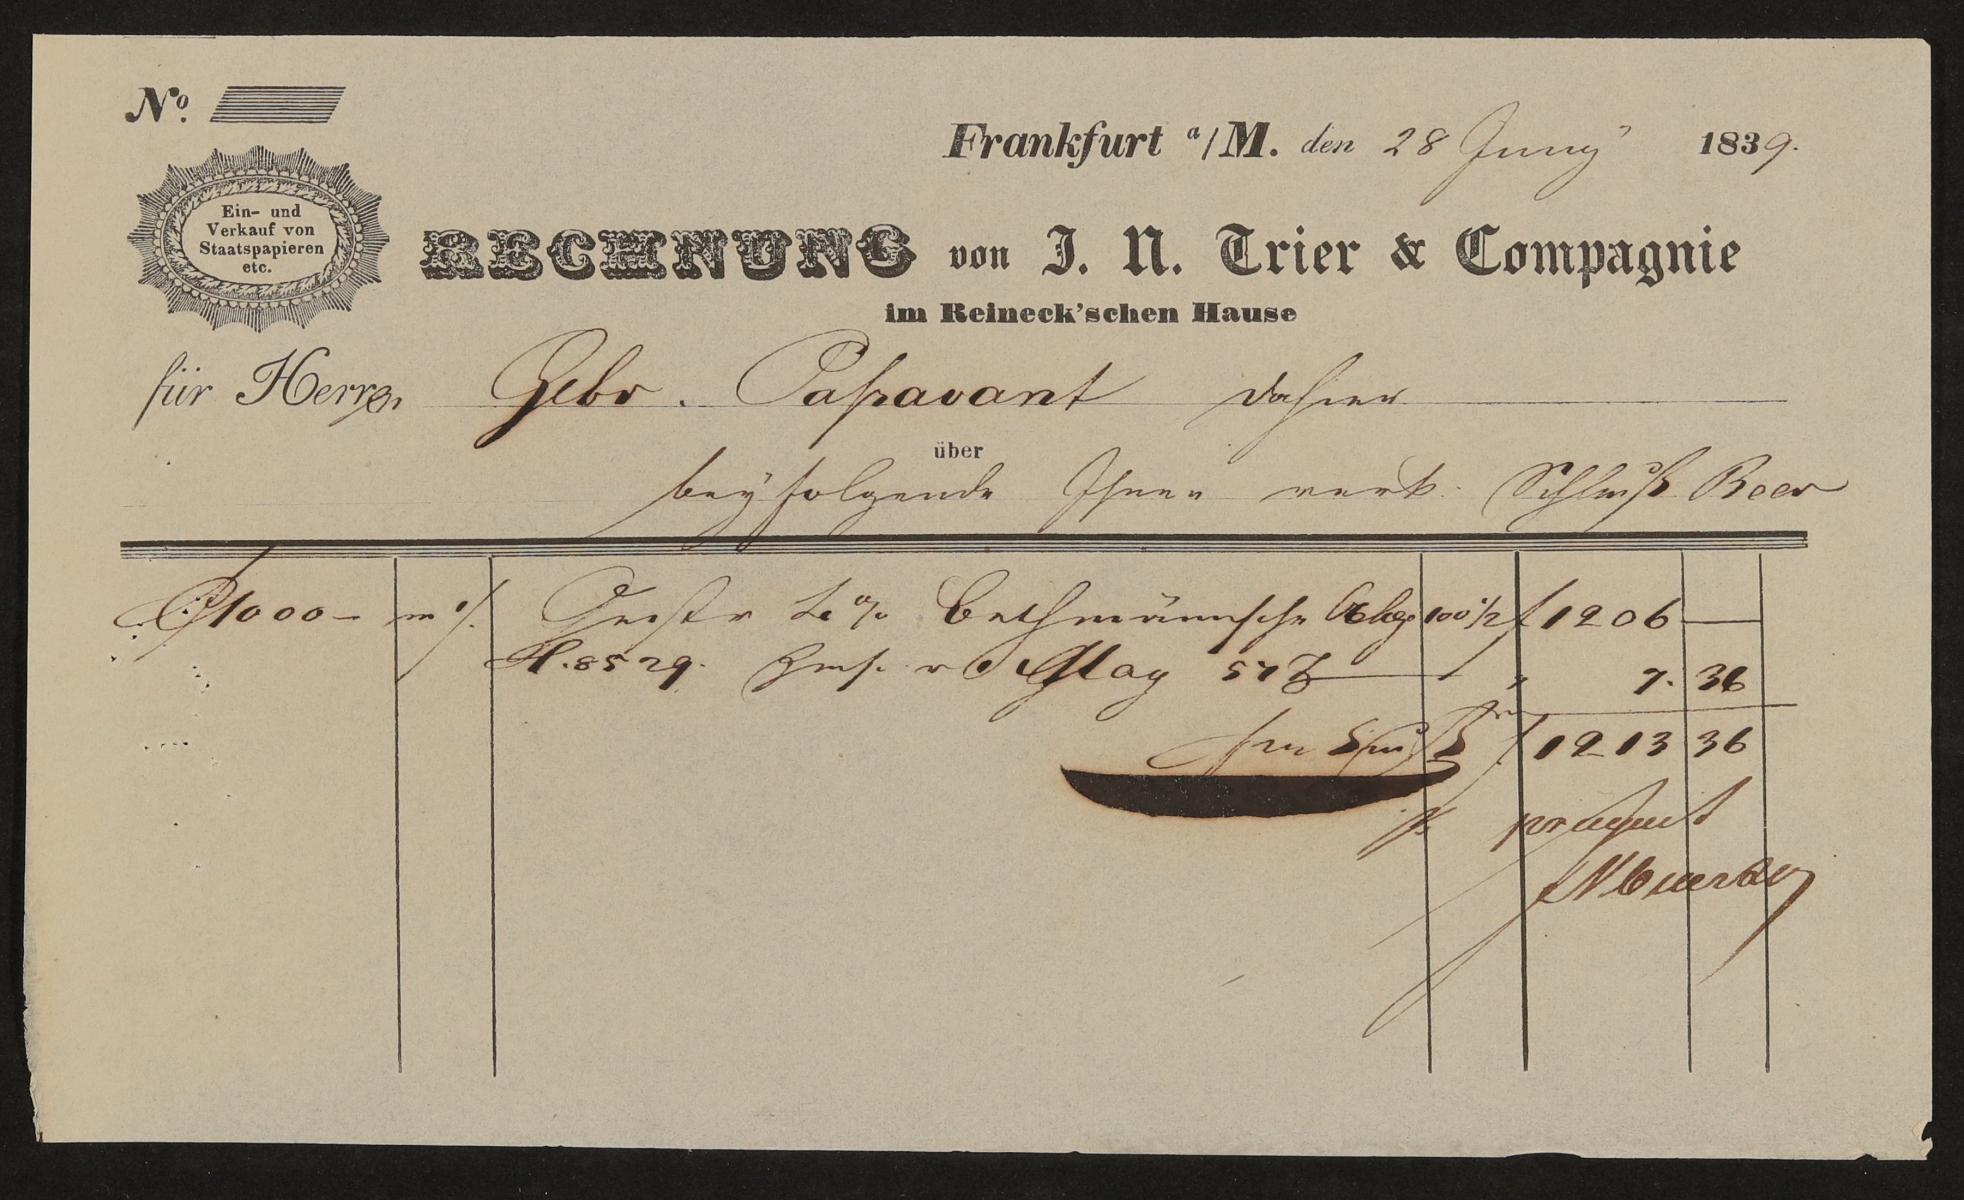 No.
Frankfurt a/M. den 28 Juny 1839.
Ein- und
Verkauf von
Staatspapieren
etc.
RECHNUNG von J. N. Trier & Compagnie
im Reineck'schen Hause
für Herren Gebr. Paßavant dahier
über
beyfolgende Ihnen verk. Schluß Beer
1000 – Oestr % Bethmännische Oblig 100 1/2 f 1206 —
N. 8529. Zins. v May 57 T — „ 7. 36
f 1213 36
pr acquit